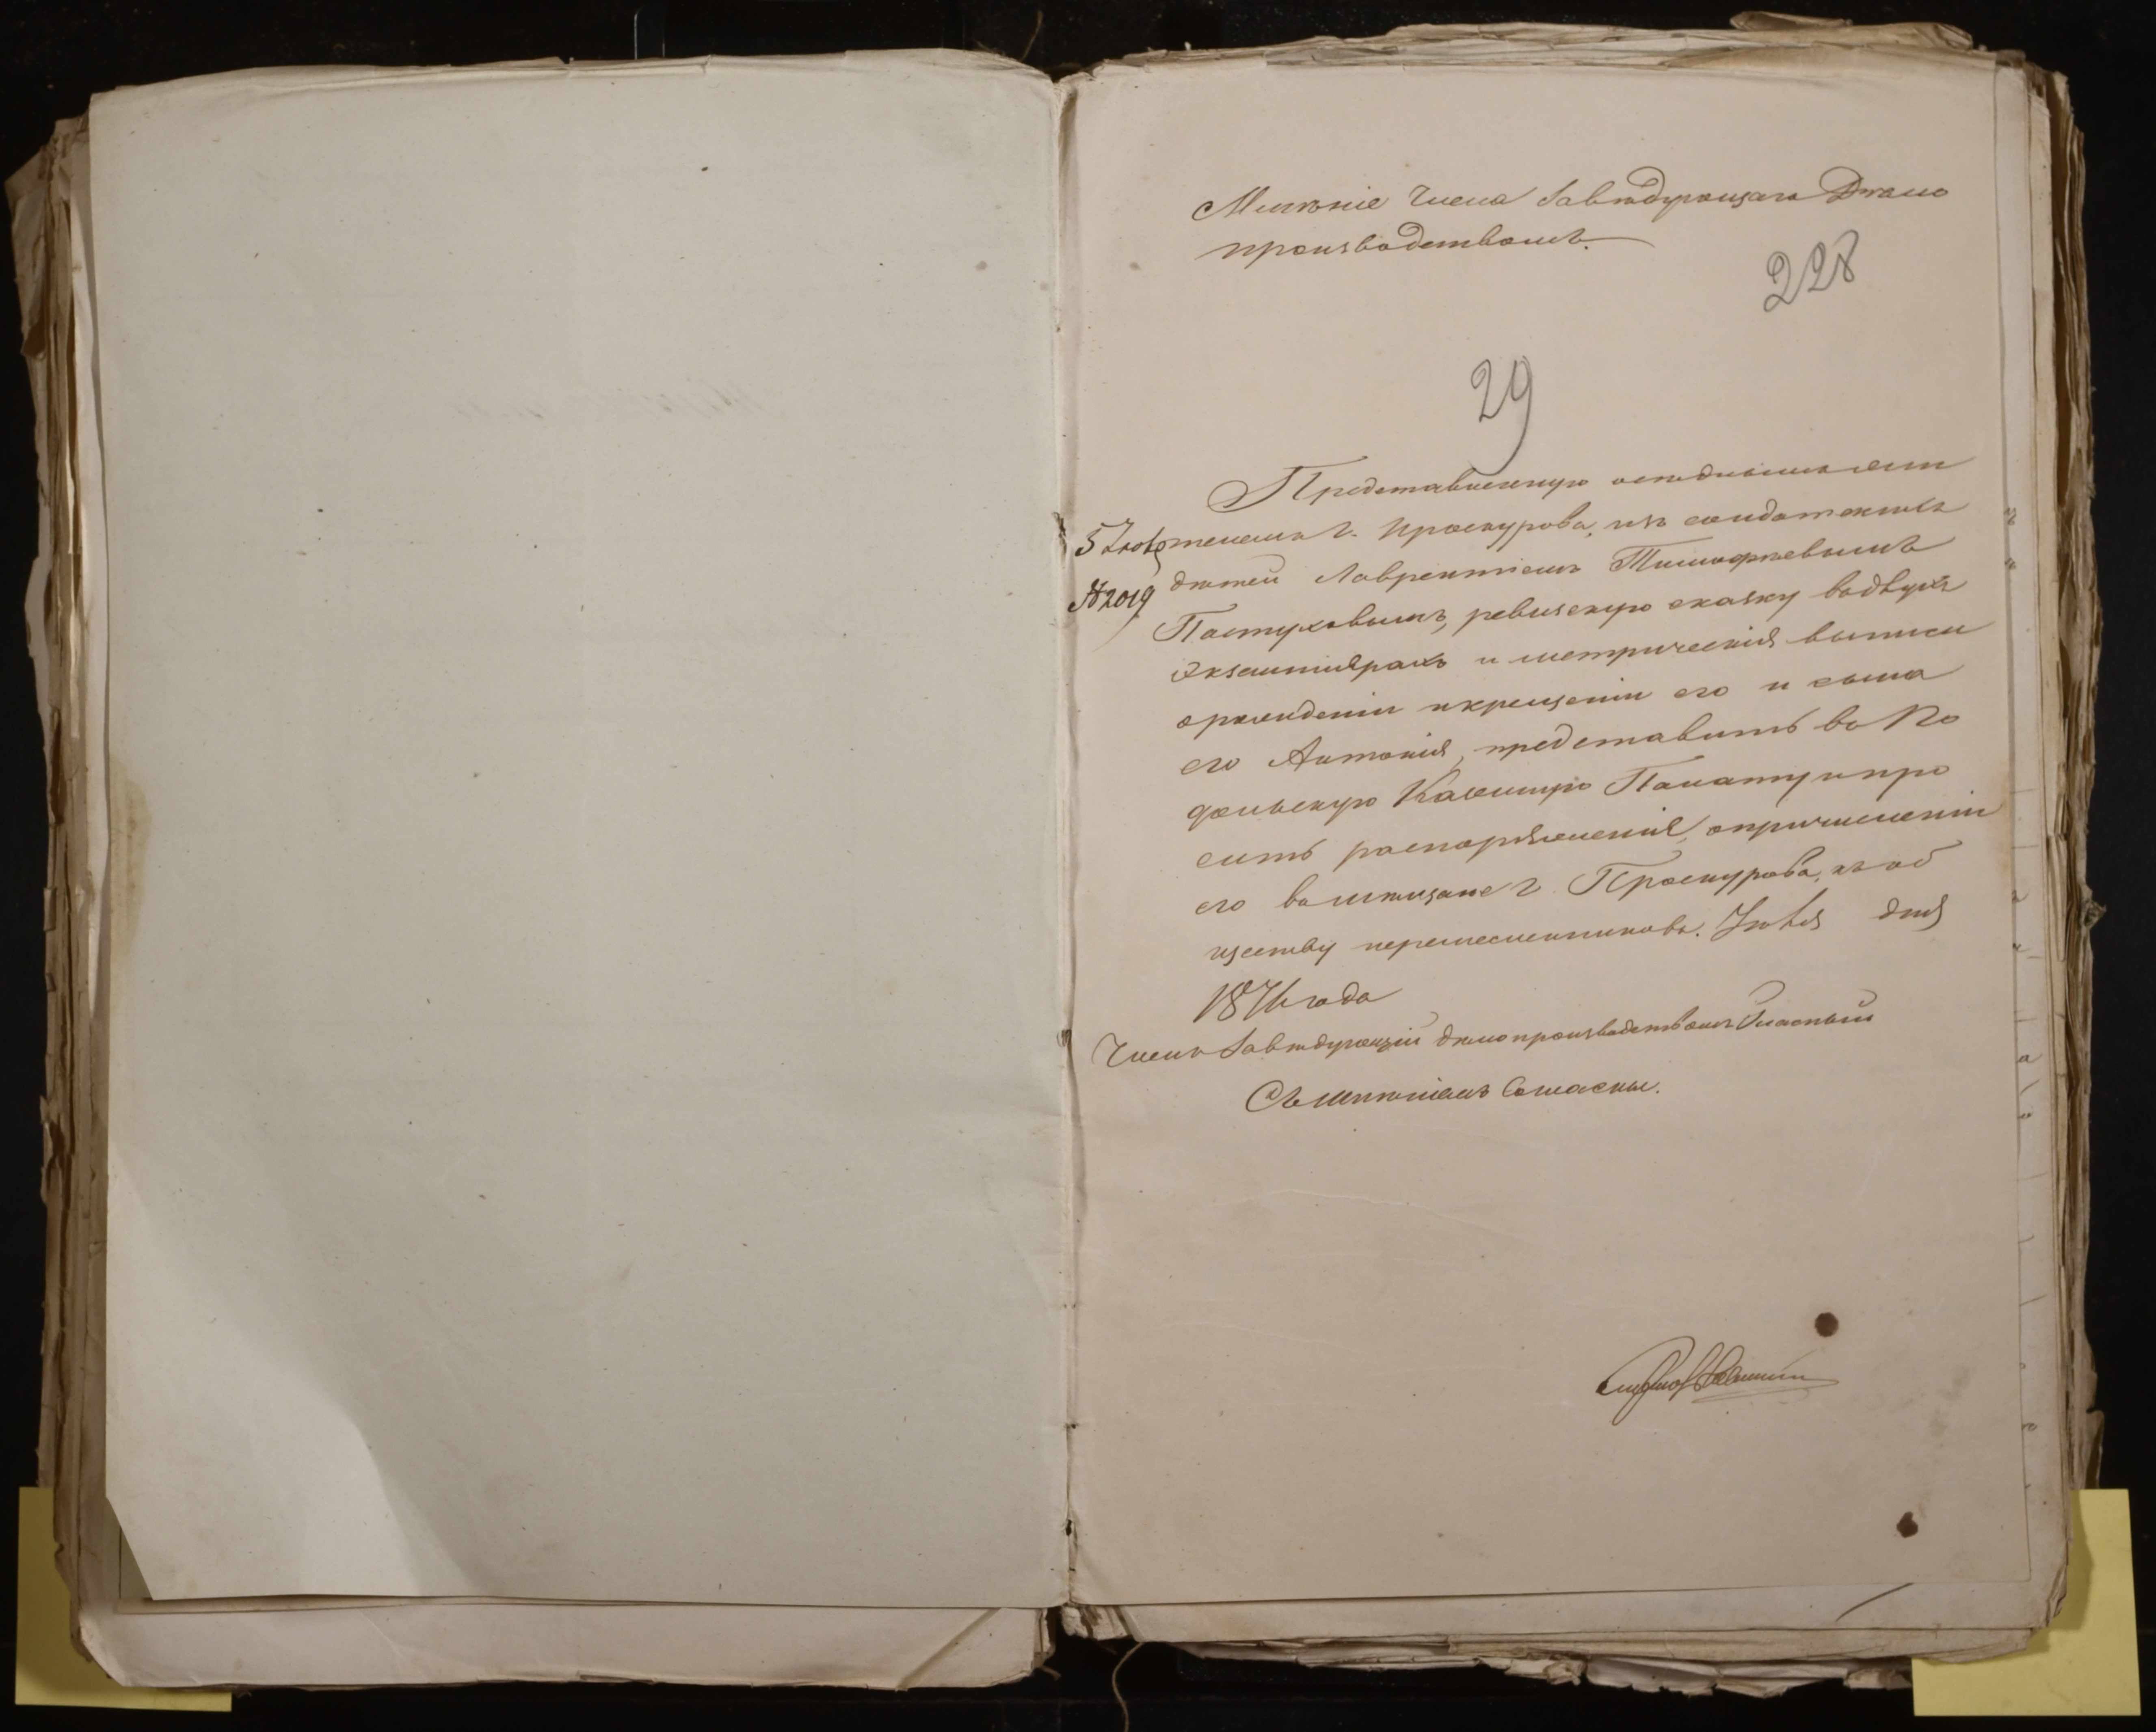 Мнѣніе Члена Завѣдующаго Дѣло
производствомъ.
228
29
Представленную осѣдлымъ жи
5 Іюля телемъ г. Проскурова, изъ солдатскихъ
№ 2019 дѣтей Лаврентіемъ Тимофѣевымъ
Пастуховымъ, ревизскую сказку вдвухъ
экземплярахъ и метрическія выписи
орожденіи икрещеніи его и сына
его Антонія, представить въ По
дольскую Казенную Палату и про
сить распоряженія, опричисленіи
его вмѣщане г. Проскурова, къ об
ществу перемесленниковъ. Іюля дня
1876 года
Членъ Завѣдующій дѣлопроизводствомъ Гласный
Съ мнѣніемъ Согласны.